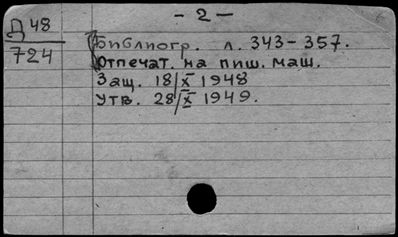 - 2 -
Д 48
724
Библиогр. л. 343-357.
Отпечат. на пиш. маш.
Защ. 18/X 1948
Утв. 28/X 1949.